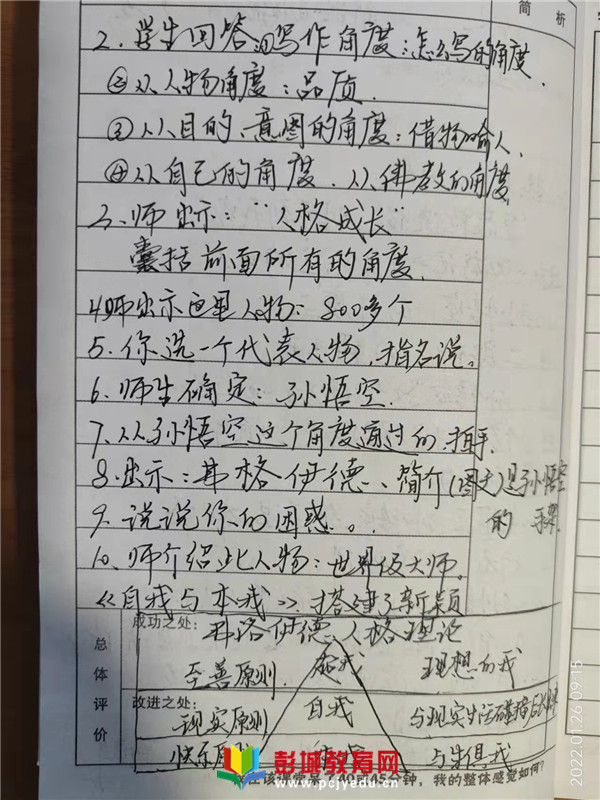 简析
2.学生回答:写作角度:怎么写的角度.
②从人物角度:品质.
③从目的意图的角度:借物喻人.
④从自己的角度.从佛教的角度.
3.师出示:“人格成长”
囊括前面所有的角度.
4.师出示这里人物:800多个
5.你选一个代表人物,指名说。
6.师生确定:孙悟空.
7.从孙悟空这个角度通过的.
8.出示:弗格伊德、简介(图夫)是孙悟空
的
9.说说你的困惑。
10.师介绍此人物:世界级大师。
《自我与本我》搭建了新颖
总体评价
成功之处:
弗洛伊德人格理论
至善原则 超我 理想的我
改进之处:
现实原则 自我 与现实生活碰撞
快乐原则 本我 与生俱我
在该课堂呆了40或45分钟,我的整体感觉如何?
彭城教育网
www.pcjyedu.cn
2022.01.26 09:15